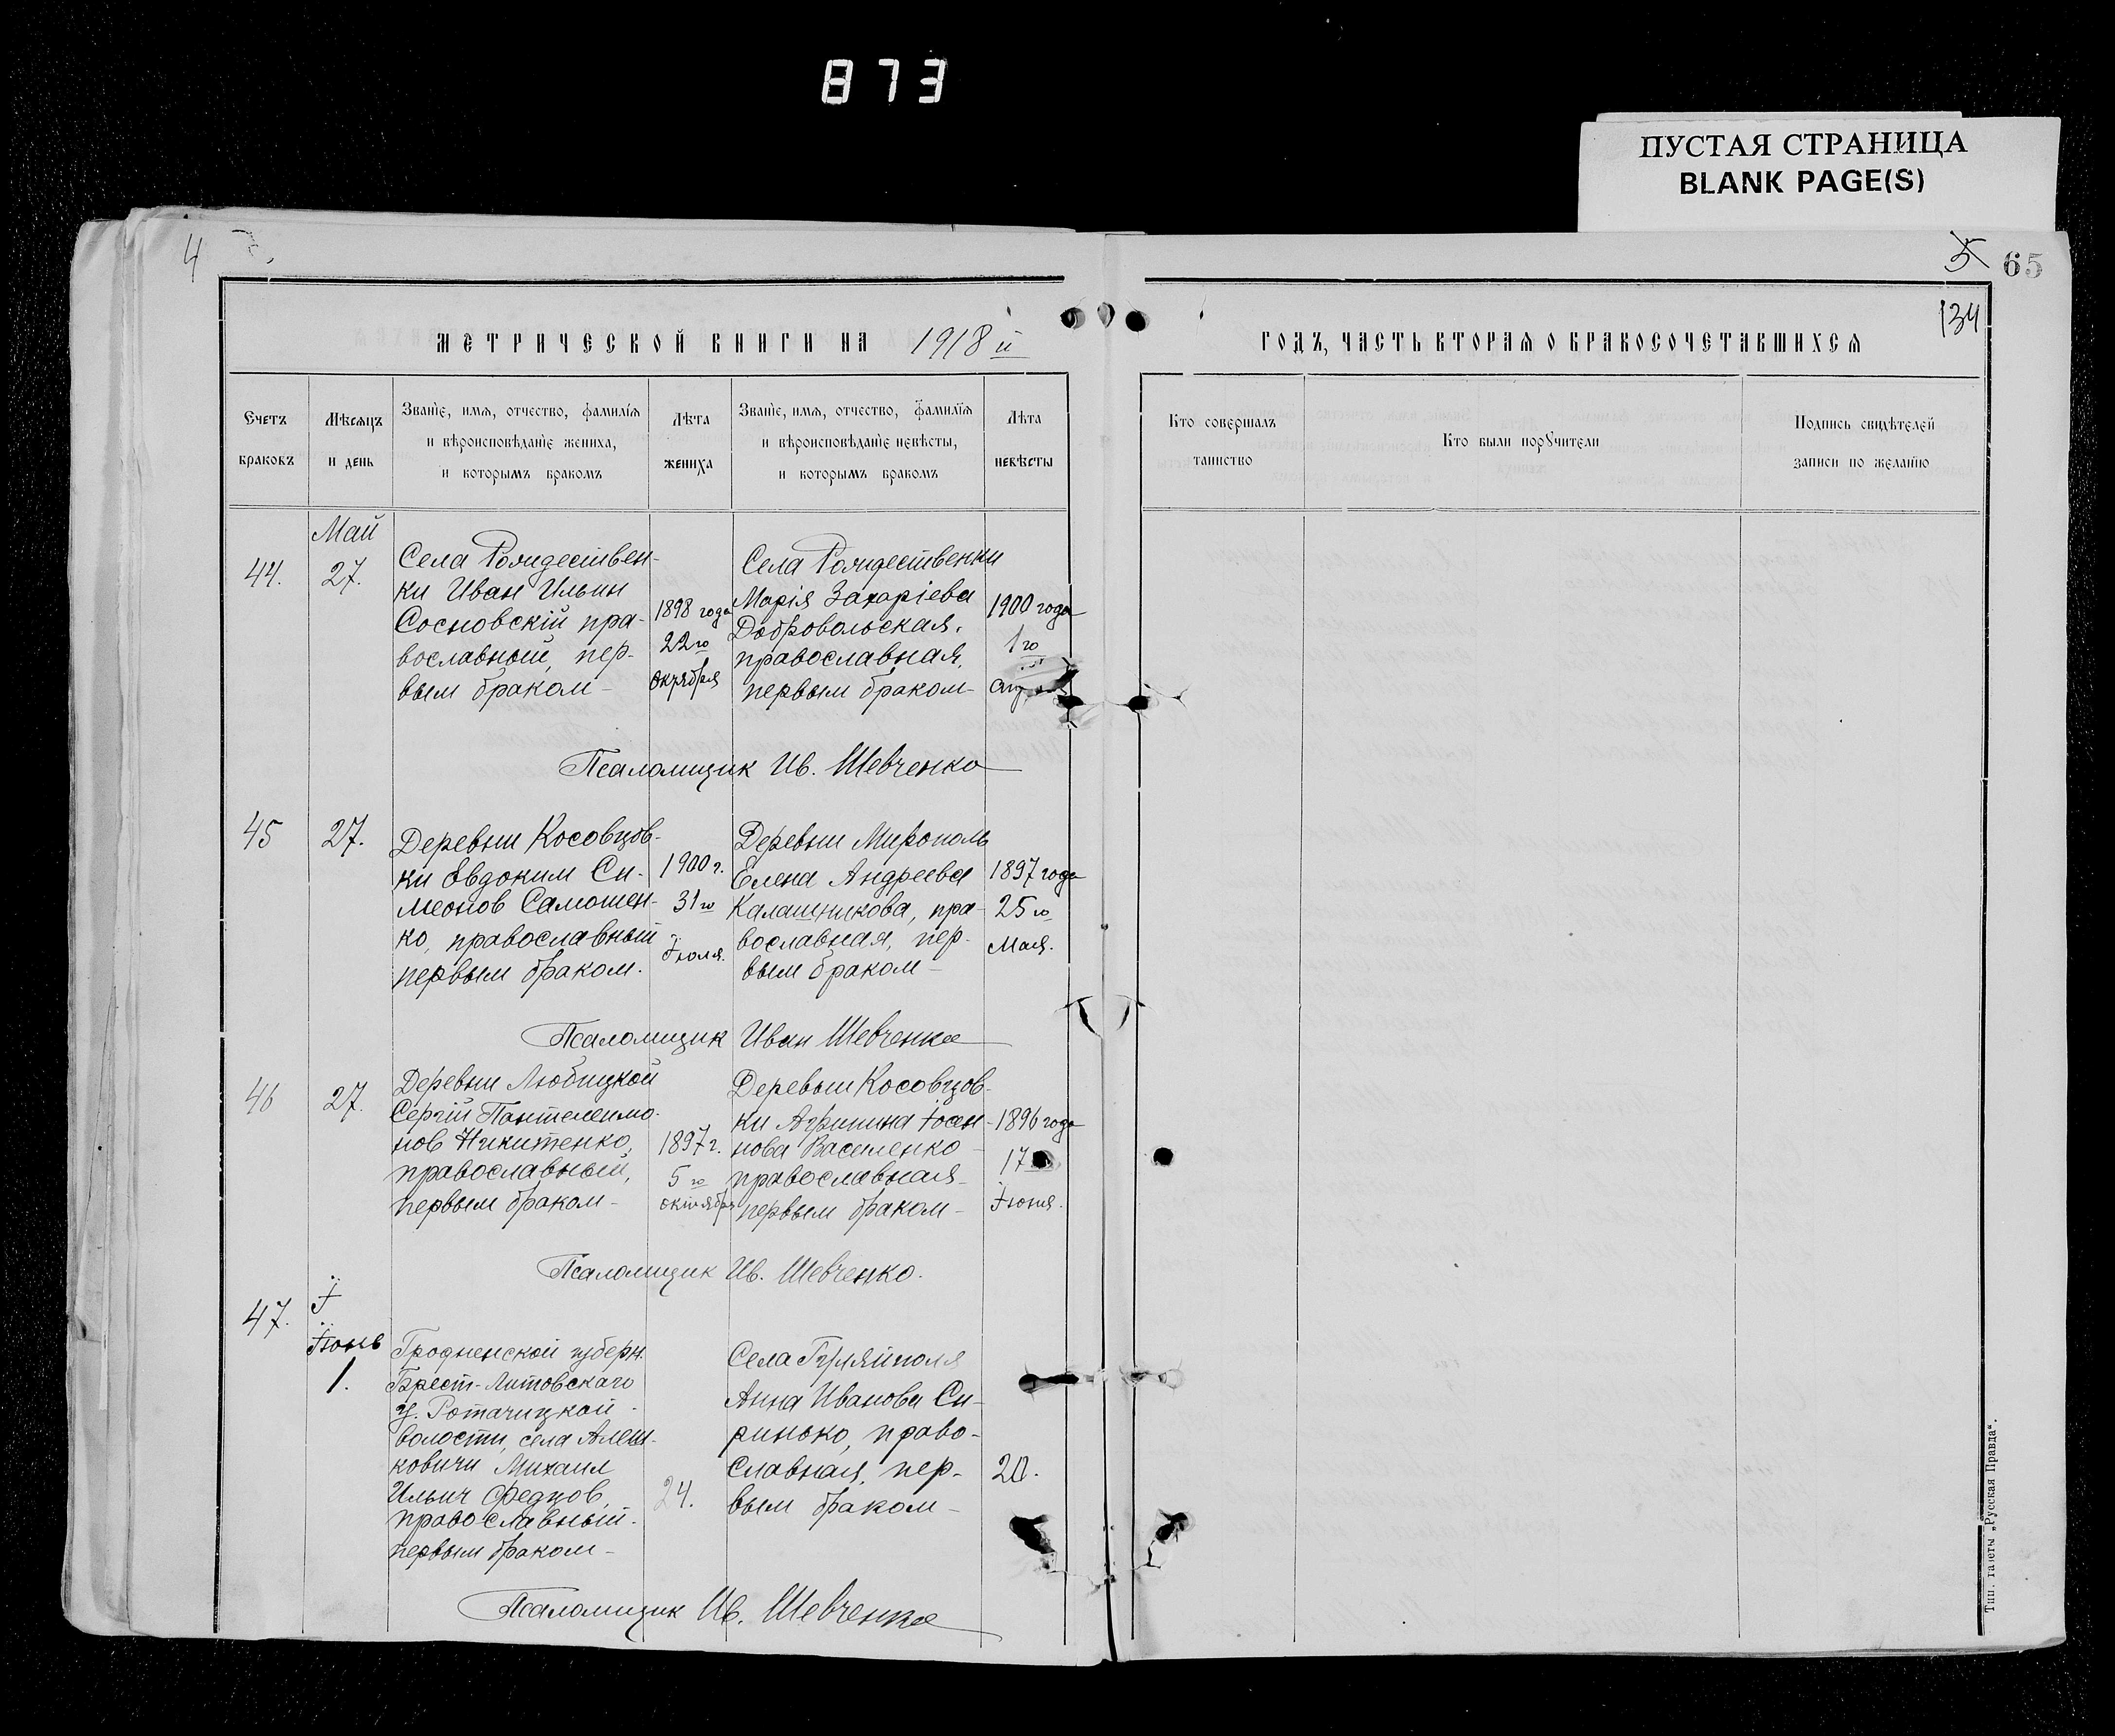 873
ПУСТАЯ СТРАНИЦА
BLANK PAGE(S)
4
5
65
134
МЕТРИЧЕСКОЙ КНИГИ НА 1918 й
ГОДЪ, ЧАСТЬ ВТОРАЯ О БРАКОСОЧЕТАВШИХСЯ
Счетъ
браковъ
Мѣсяцъ
и день
Званіе, имя, отчество, фамилія
и вѣроисповѣданіе жениха,
и которымъ бракомъ
Лѣта
жениха
Званіе, имя, отчество, фамилія
и вѣроисповѣданіе невѣсты,
и которымъ бракомъ
Лѣта
невѣсты
Кто совершалъ
таинство
Кто были поручители
Подпись свидѣтелей
записи по желанію
44.
Май
27.
Села Рождествен-
ки Иван Ильин
Сосновскій пра-
вославный, пер-
вым браком-
1898 года
22го
октября
Села Рождественки
Марія Захаріева
Добровольская.
православная,
первым браком-
1900 года
1го
Псаломщик Ив. Шевченко
45
27.
Деревни Косовцов-
ки Евдоким Си-
меонов Самошен-
ко, православный
первым браком.
1900 г.
31го
Іюля.
Деревни Мирополь
Елена Андреева
Калашникова, пра-
вославная, пер-
вым браком-
1897 года
25го
Мая.
Псаломщик Иван Шевченко
46
27.
Деревни Любицкой
Сергій Пантелеимо-
нов Никитенко,
православный,
первым браком-
1897 г.
5го
октября
Деревни Косовцов-
ки Агрипина Іоан-
нова Василенко
православная-
первым браком-
1896 года
17
Іюня.
Псаломщик Ив. Шевченко.
47.
І
Іюнь
1.
Гродненской губерн.
Брест-Литовскаго
у. Ротачицкой
волости, села
ковичи Михаил
Ильич Федцов,
православный.
первым браком-
24.
Села Гуляйполя
Анна Иванова Си-
ринько, право-
славная, пер-
вым браком-
20.
Псаломщик Ив. Шевченко
Тип. газеты „Русская Правда“.